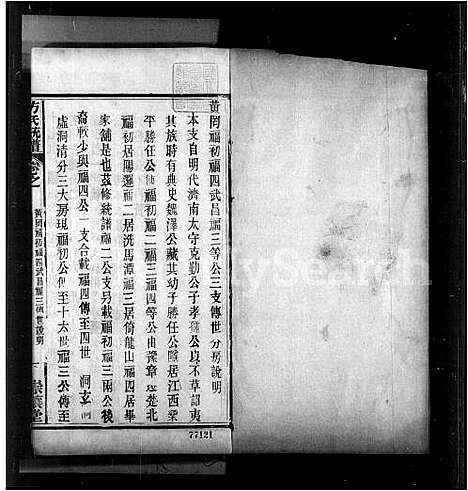 黃岡福初福四武昌福三等公三支傳世分房說明
本支自明代濟南太守克勤公子孝孺公以不草詔夷
其族時有典史魏澤公藏其幼子勝任公隱居江西
平勝任公傳福初福二福三福四等公由豫章遷楚北
福初居陽邏福二居洗馬潭福三居倚龍山福四居畢
家舖是也茲修統譜福二公支另載福初福三兩公後
裔較少與福四公一支合載福四傳至四世 洞玄
虛洞清分三大房現福初公傳至十太世福三公傳至
方氏統譜
卷之
黃岡福初福四武昌福三傳世說明
一
崇義堂
77121